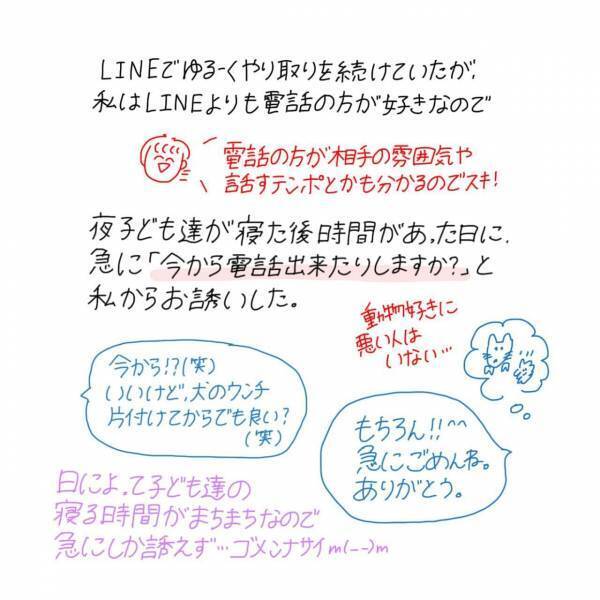 LINEでゆるーくやり取りを続けていたが、
私はLINEよりも電話の方が好きなので
電話の方が相手の雰囲気や
話すテンポとかも分かるのでスキ!
夜子ども達が寝た後時間があった日に、
急に「今から電話出来たりしますか?」と
私からお誘いした。
動物好きに
悪い人は
いない…
今から!?(笑)
いいけど、犬のウンチ
片付けてからでも良い?
(笑)
もちろん!!^^
急にごめんね。
ありがとう。
日によって子ども達の
寝る時間がまちまちなので
急にしか誘えず…ゴメンナサイm(--)m